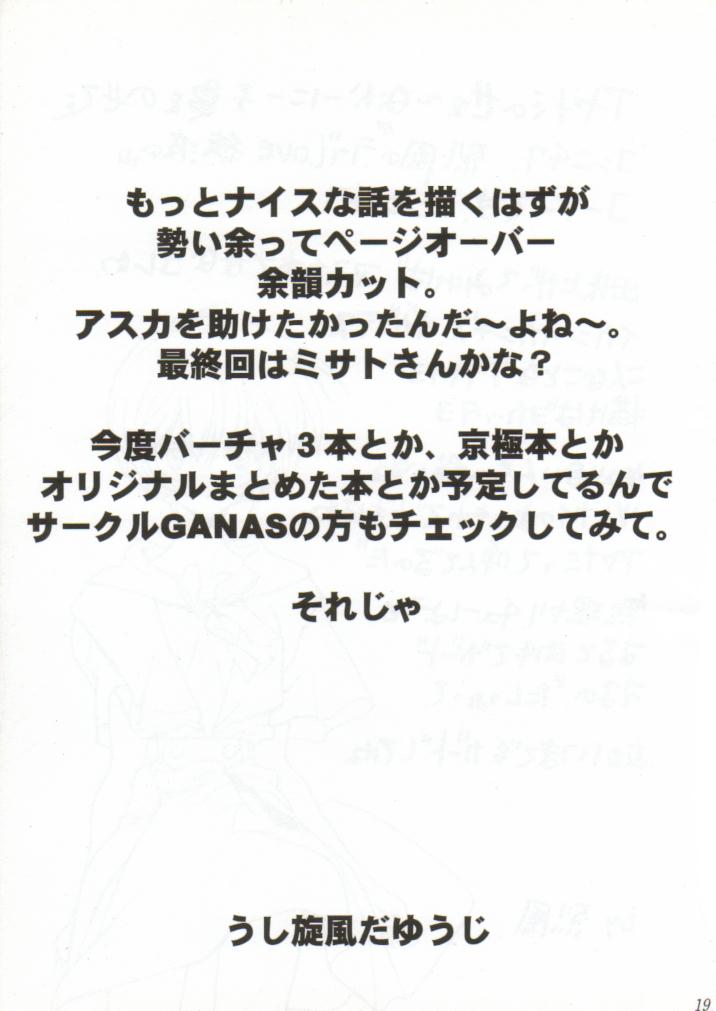 もっとナイスな話を描くはずが
勢い余ってページオーバー
余韻カット。
アスカを助けたかったんだ～よね～。
最終回はミサトさんかな？
今度バーチャ３本とか、京極本とか
オリジナルまとめた本とか予定してるんで
サークルGANASの方もチェックしてみて。
それじゃ
うし旋風だゆうじ
19